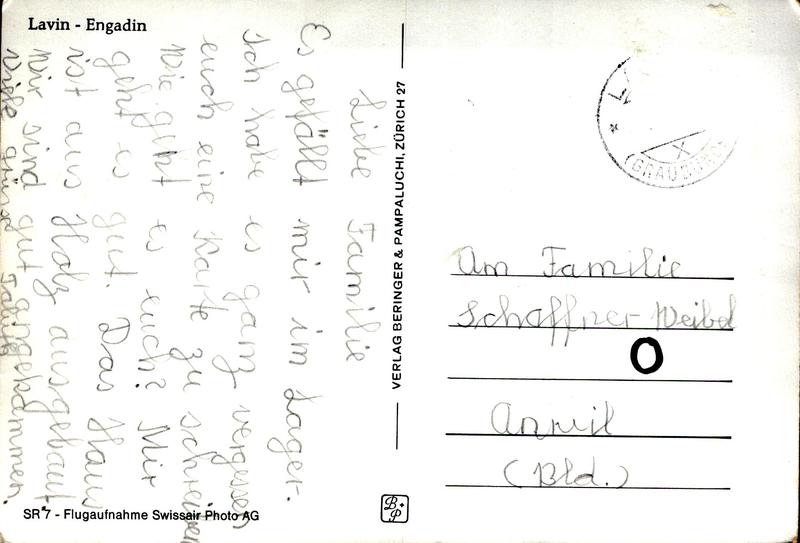 Lavin - Engadin
Liebe Familie
Es gefällt mir im Lager.
Ich habe es ganz vergessen
euch eine Karte zu schreiben
Wie geht es euch? Mir
geht es gut. Das Haus
ist aus Holz ausgebaut
Wir sind gut angekommen.
Viele grüsse
SR 7 - Flugaufnahme Swissair Photo AG
VERLAG BERINGER & PAMPALUCHI, ZÜRICH 27
B+P
(GRAUBÜNDEN)
X
Am Familie
Schaffner-Weibel
O
Anwil
(Bld.)